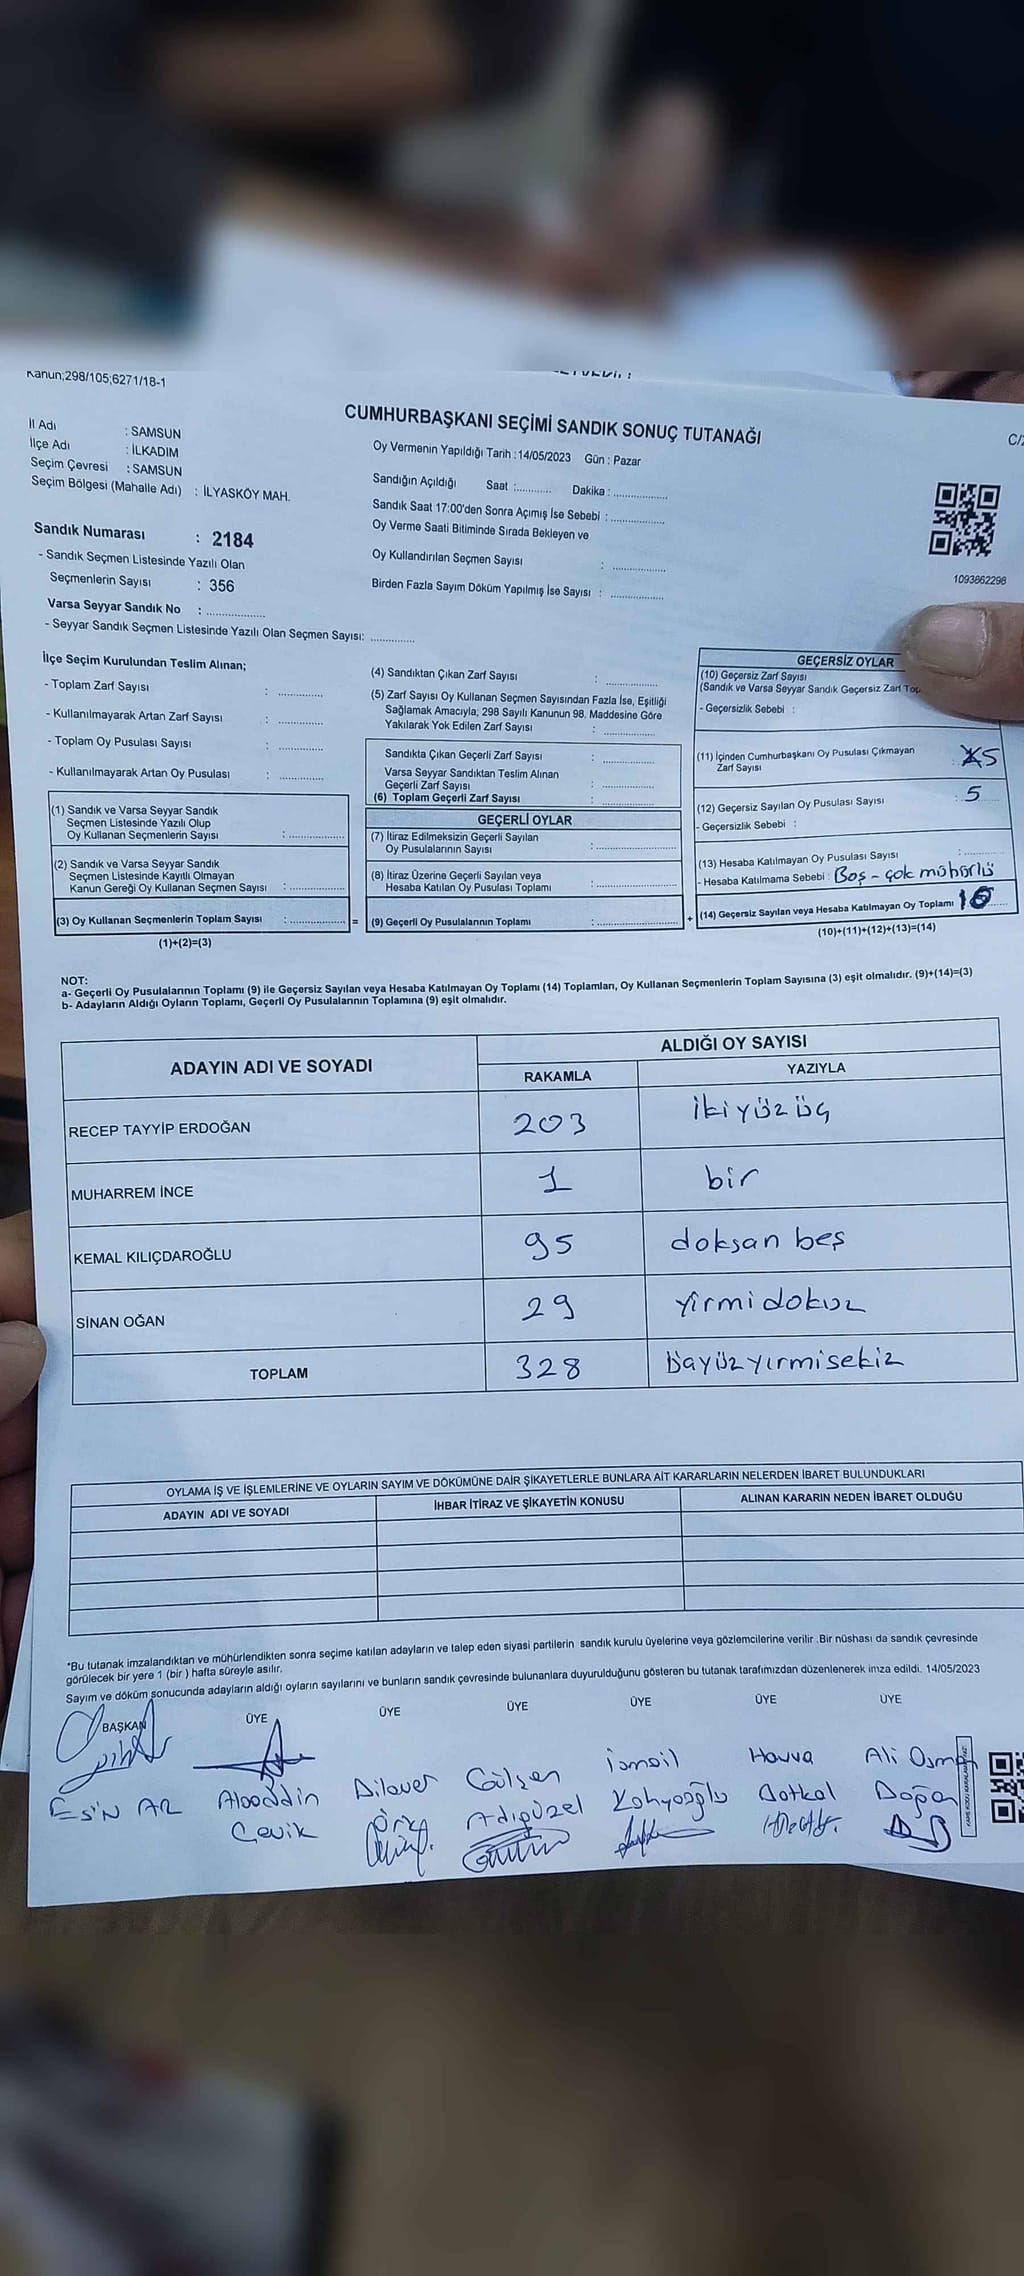 Kanun;298/105;6271/18-1
CUMHURBAŞKANI SEÇİMİ SANDIK SONUÇ TUTANAĞI
İl Adı : SAMSUN
İlçe Adı : İLKADIM
Seçim Çevresi : SAMSUN
Seçim Bölgesi (Mahalle Adı) : İLYASKÖY MAH.
Sandık Numarası : 2184
- Sandık Seçmen Listesinde Yazılı Olan
Seçmenlerin Sayısı : 356
Varsa Seyyar Sandık No : ..............
- Seyyar Sandık Seçmen Listesinde Yazılı Olan Seçmen Sayısı: ..............
Oy Vermenin Yapıldığı Tarih :14/05/2023 Gün : Pazar
Sandığın Açıldığı Saat :........... Dakika : ..................
Sandık Saat 17:00'den Sonra Açımış İse Sebebi : ..................
Oy Verme Saati Bitiminde Sırada Bekleyen ve
Oy Kullandırılan Seçmen Sayısı : ..................
Birden Fazla Sayım Döküm Yapılmış İse Sayısı : ..................
1093862298
İlçe Seçim Kurulundan Teslim Alınan;
- Toplam Zarf Sayısı : ..............
- Kullanılmayarak Artan Zarf Sayısı : ..............
- Toplam Oy Pusulası Sayısı : ..............
- Kullanılmayarak Artan Oy Pusulası : ..............
(1) Sandık ve Varsa Seyyar Sandık
Seçmen Listesinde Yazılı Olup
Oy Kullanan Seçmenlerin Sayısı : ..................
(2) Sandık ve Varsa Seyyar Sandık
Seçmen Listesinde Kayıtlı Olmayan
Kanun Gereği Oy Kullanan Seçmen Sayısı : ..................
(3) Oy Kullanan Seçmenlerin Toplam Sayısı : .................. =
(1)+(2)=(3)
(4) Sandıktan Çıkan Zarf Sayısı : ..................
(5) Zarf Sayısı Oy Kullanan Seçmen Sayısından Fazla İse, Eşitliği
Sağlamak Amacıyla; 298 Sayılı Kanunun 98. Maddesine Göre
Yakılarak Yok Edilen Zarf Sayısı : ..................
Sandıkta Çıkan Geçerli Zarf Sayısı : ..................
Varsa Seyyar Sandıktan Teslim Alınan
Geçerli Zarf Sayısı : ..................
(6) Toplam Geçerli Zarf Sayısı : ..................
GEÇERLİ OYLAR
(7) İtiraz Edilmeksizin Geçerli Sayılan
Oy Pusulalarının Sayısı : ..................
(8) İtiraz Üzerine Geçerli Sayılan veya
Hesaba Katılan Oy Pusulası Toplamı : ..................
(9) Geçerli Oy Pusulalarının Toplamı : .................. +
GEÇERSİZ OYLAR
(10) Geçersiz Zarf Sayısı
(Sandık ve Varsa Seyyar Sandık Geçersiz Zarf Top
- Geçersizlik Sebebi :
(11) İçinden Cumhurbaşkanı Oy Pusulası Çıkmayan
Zarf Sayısı : 5
(12) Geçersiz Sayılan Oy Pusulası Sayısı : 5
- Geçersizlik Sebebi :
(13) Hesaba Katılmayan Oy Pusulası Sayısı : ..............
- Hesaba Katılmama Sebebi : Boş - çok mühürlü
(14) Geçersiz Sayılan veya Hesaba Katılmayan Oy Toplamı 10
(10)+(11)+(12)+(13)=(14)
NOT:
a- Geçerli Oy Pusulalarının Toplamı (9) ile Geçersiz Sayılan veya Hesaba Katılmayan Oy Toplamı (14) Toplamları, Oy Kullanan Seçmenlerin Toplam Sayısına (3) eşit olmalıdır. (9)+(14)=(3)
b- Adayların Aldığı Oyların Toplamı, Geçerli Oy Pusulalarının Toplamına (9) eşit olmalıdır.
ADAYIN ADI VE SOYADI ALDIĞI OY SAYISI
RAKAMLA YAZIYLA
RECEP TAYYİP ERDOĞAN 203 ikiyüz üç
MUHARREM İNCE 1 bir
KEMAL KILIÇDAROĞLU 95 doksan beş
SİNAN OĞAN 29 yirmi dokuz
TOPLAM 328 üçyüzyirmisekiz
OYLAMA İŞ VE İŞLEMLERİNE VE OYLARIN SAYIM VE DÖKÜMÜNE DAİR ŞİKAYETLERLE BUNLARA AİT KARARLARIN NELERDEN İBARET BULUNDUKLARI
ADAYIN ADI VE SOYADI İHBAR İTİRAZ VE ŞİKAYETİN KONUSU ALINAN KARARIN NEDEN İBARET OLDUĞU
*Bu tutanak imzalandıktan ve mühürlendikten sonra seçime katılan adayların ve talep eden siyasi partilerin sandık kurulu üyelerine veya gözlemcilerine verilir .Bir nüshası da sandık çevresinde
görülecek bir yere 1 (bir ) hafta süreyle asılır.
Sayım ve döküm sonucunda adayların aldığı oyların sayılarını ve bunların sandık çevresinde bulunanlara duyurulduğunu gösteren bu tutanak tarafımızdan düzenlenerek imza edildi. 14/05/2023
BAŞKAN ÜYE ÜYE ÜYE ÜYE ÜYE ÜYE
Esin AR Alaaddin Dilaver Gülşen İsmail Havva Ali Osman
Çevik Adıgüzel Kahyaoğlu Doğan